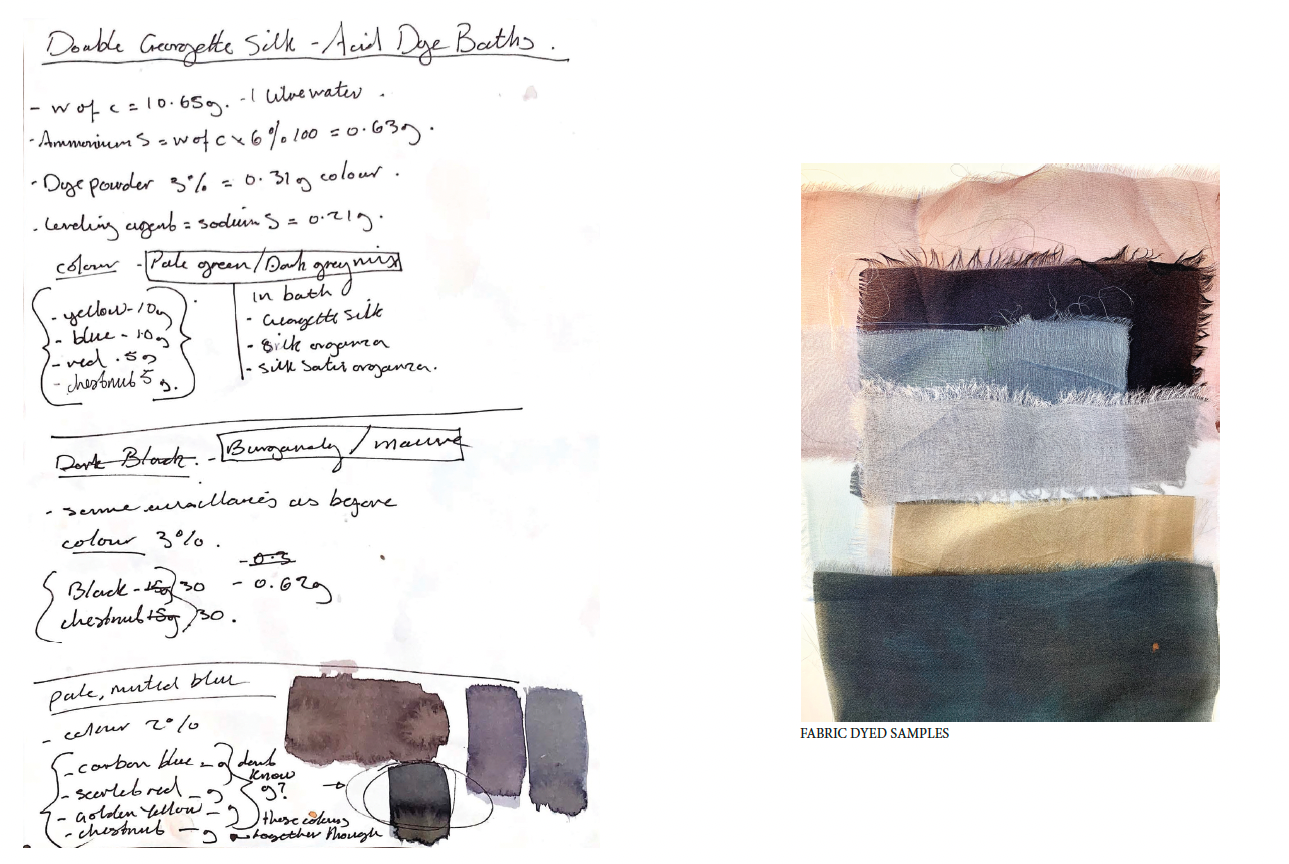 Double Georgette Silk - Acid Dye Baths.
- w of c = 10.65g. - 1 litre water.
- Ammonium S = w of c x 6% 100 = 0.63g.
- Dye powder 3% = 0.31g colour.
- leveling agent = sodium S = 0.21g.
colour - Pale green/Dark grey mix
- yellow - 10g
- blue - 10g
- red .5g
- chestnut 5g.
in bath
- Georgette silk
- silk organza
- silk satin organza.
Dark Black. - Burgandy / mauve
- same auxillaries as before
colour 3%.
- 0.3
Black - 15g 30 - 0.62g
chestnut 15g 30.
pale, muted blue
- colour 2%
- carbon blue - g
- scarlet red - g
- golden yellow - g
- chestnut - g
dont
know
g?
these colours
together though
FABRIC DYED SAMPLES